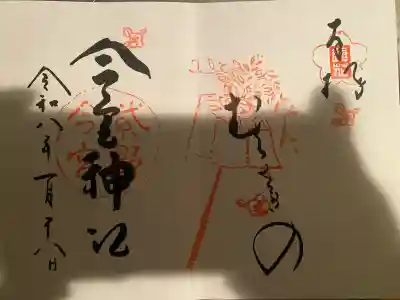 奉拝
むさしの
今宮神社
令和八年一月十八日